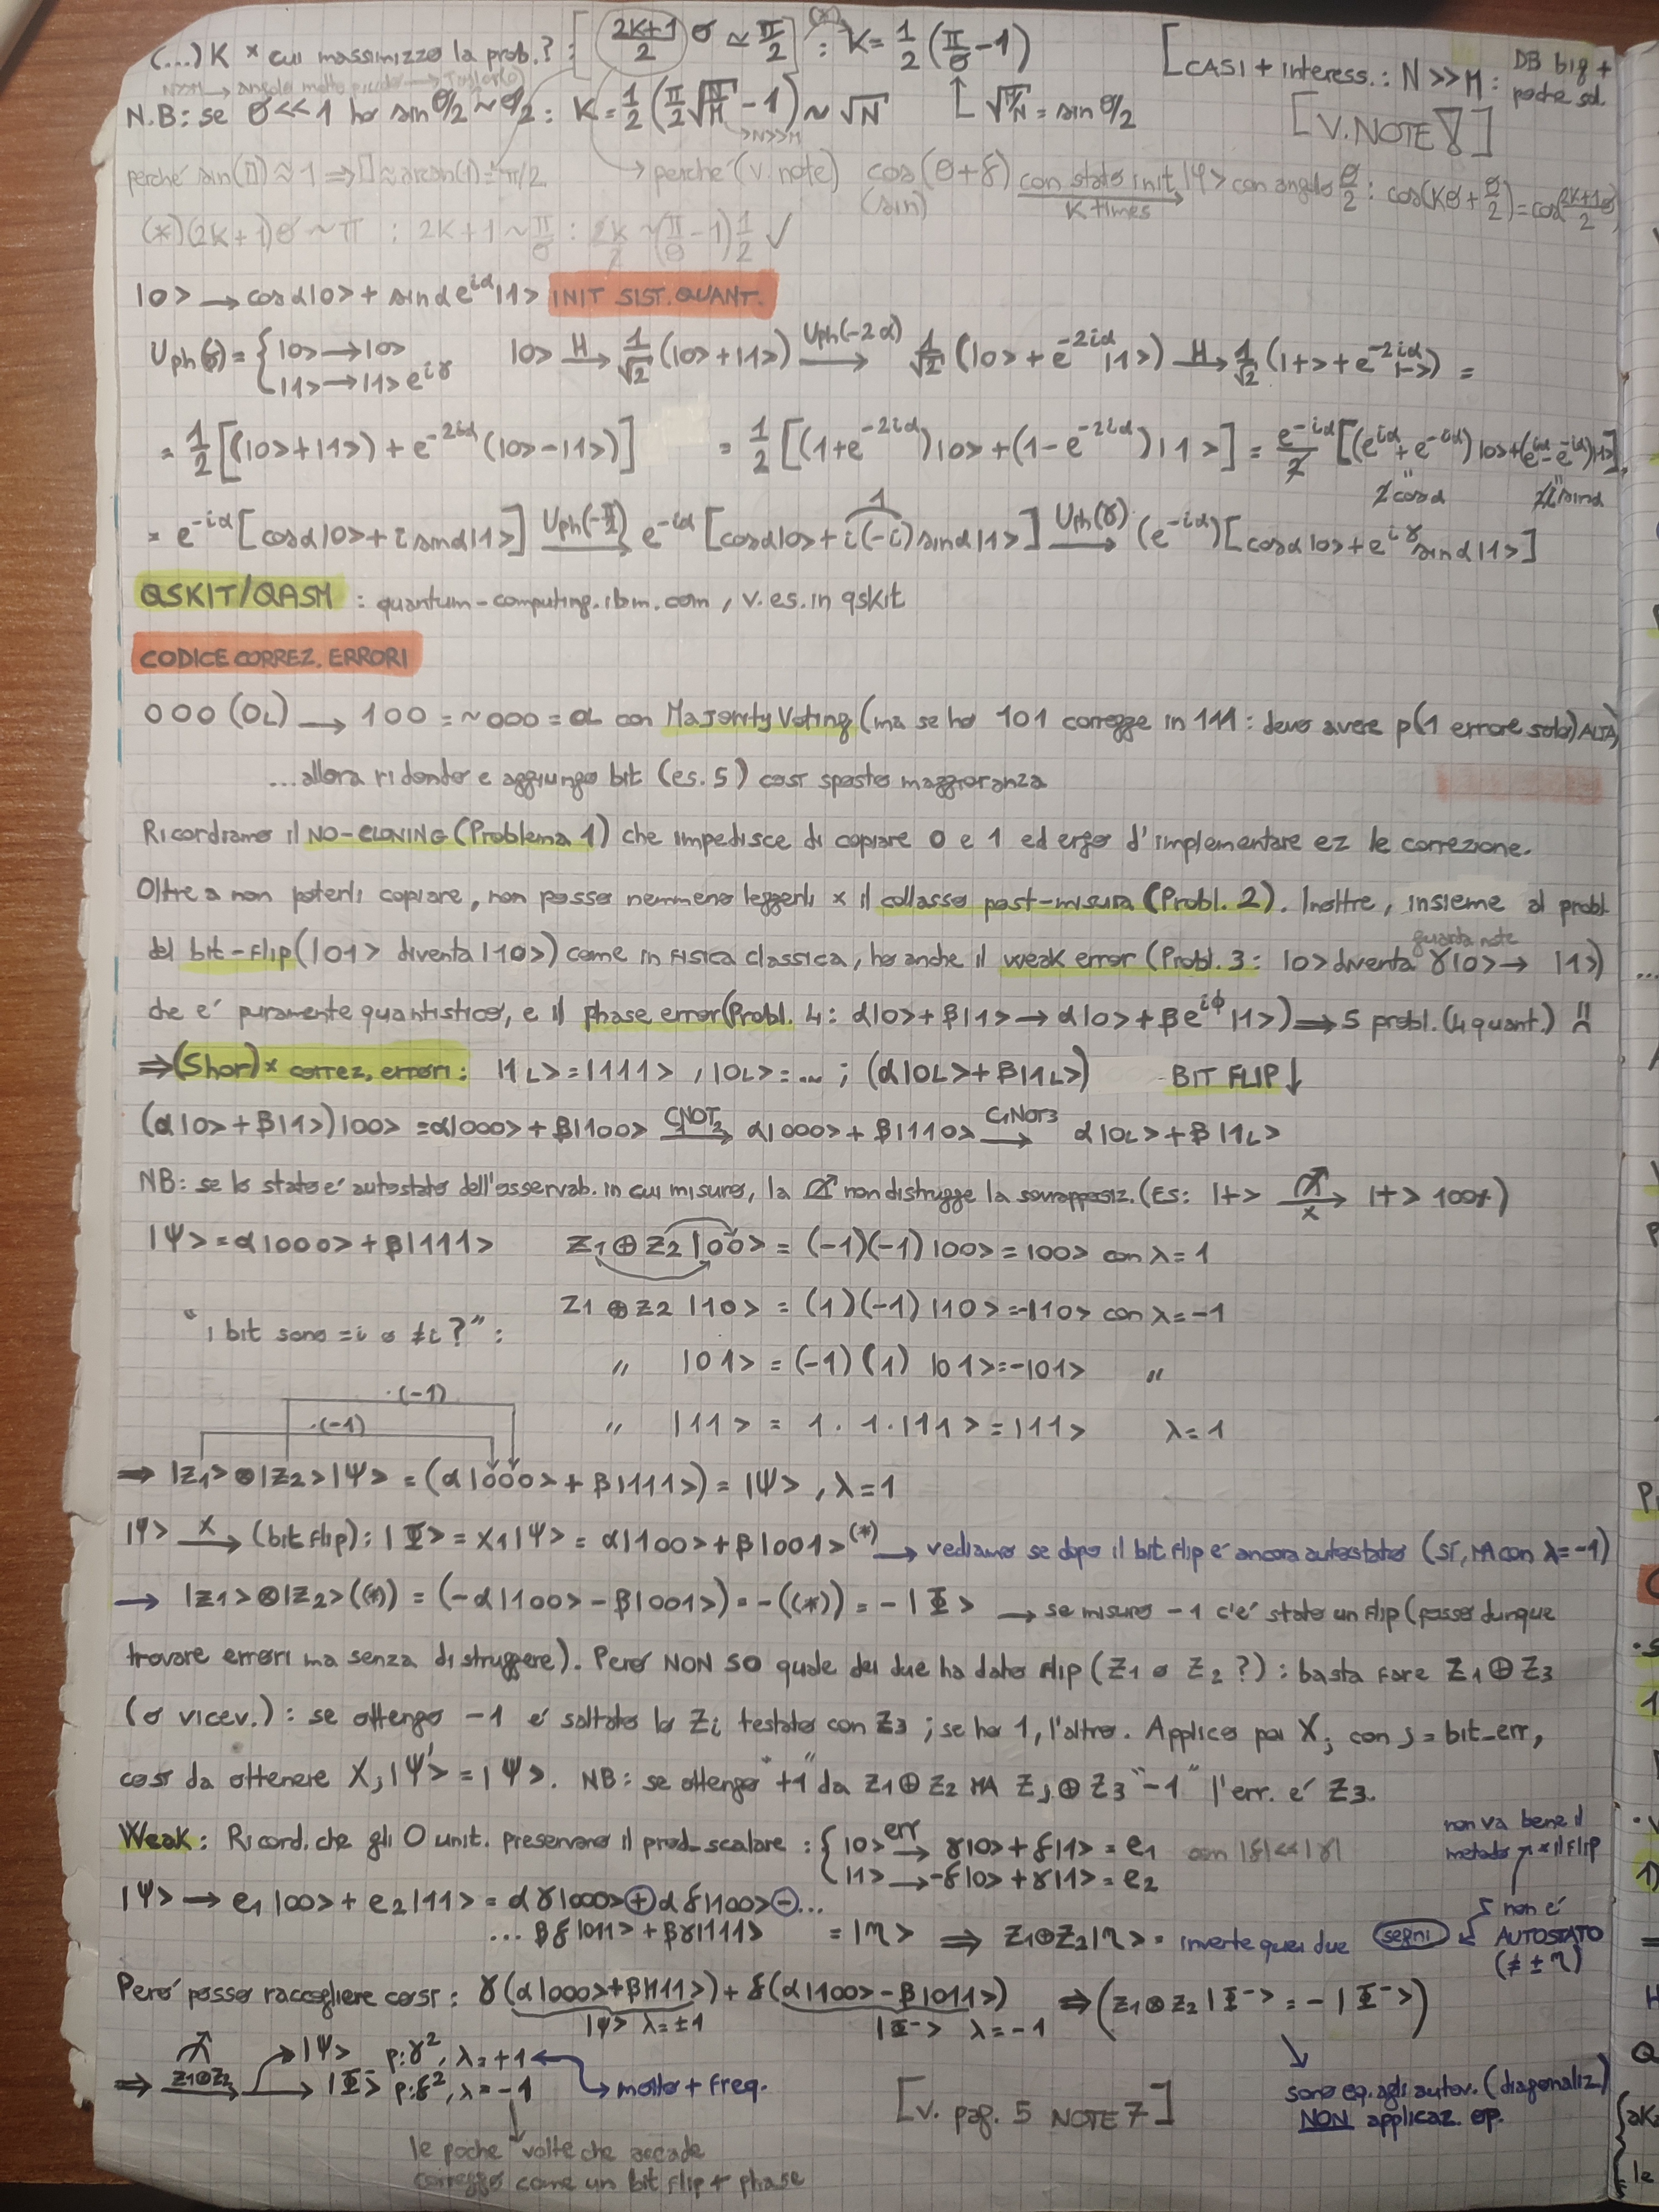 (...) K × cui massimizzo la prob.? : [ (2K+1)/2 θ ≃ π/2 ] (*) : K = 1/2 (π/θ - 1) [CASI + interess.: N >> M : DB big + poche sol.
N.B: se θ << 1 ho sin θ/2 ~ θ/2 : K = 1/2 (π/2 √(N/M) - 1) ~ √N ↳ √(M/N) = sin θ/2 [V. NOTE 8]
→ N>>M
perché sin(□) ≈ 1 ⇒ □ ≈ arcsin(1) = π/2 → perché (v. note) cos(θ+δ) (sin) con stato init. |φ> con angolo θ/2 : K times cos(Kθ + θ/2) = cos (2K+1)θ/2
(*) (2K+1)θ ~ π : 2K+1 ~ π/θ : 2K/2 ~ (π/θ - 1) 1/2 ✓
|0> → cosα|0> + sinα e^{iα} |1> INIT SIST. QUANT.
Uph(γ) = { |0> → |0> |1> → |1> e^{iγ} |0> →H 1/√2 (|0> + |1>) →Uph(-2α) 1/√2 (|0> + e^{-2iα} |1>) →H 1/√2 (|+> + e^{-2iα} |->) =
= 1/2 [(|0> + |1>) + e^{-2iα} (|0> - |1>)] = 1/2 [(1+e^{-2iα})|0> + (1-e^{-2iα})|1>] = e^{-iα}/2 [(e^{iα} + e^{-iα})|0> + (e^{iα} - e^{-iα})|1>]
2cosα 2i sinα
= e^{-iα} [cosα|0> + i sinα|1>] →Uph(-π/2) e^{-iα} [cosα|0> + i(-i) sinα|1>] →Uph(γ) (e^{-iα}) [cosα|0> + e^{iγ} sinα|1>]
QSKIT/QASM : quantum-computing.ibm.com, v. es. in qskit
CODICE CORREZ. ERRORI
000 (0L) → 100 = ~000 = 0L con Majority Voting (ma se ho 101 corregge in 111 : devo avere p(1 errore solo) ALTA)
...allora ridondo e aggiungo bit (es. 5) così sposto maggioranza
Ricordiamo il NO-CLONING (Problema 1) che impedisce di copiare 0 e 1 ed ergo d'implementare ez le correzione.
Oltre a non poterli copiare, non posso nemmeno leggerli × il collasso post-misura (Probl. 2). Inoltre, insieme al probl.
del bit-flip (|01> diventa |10>) come in fisica classica, ho anche il weak error (Probl. 3 : |0> diventa γ|0> → |1>) ...
che e' puramente quantistico, e il phase error (Probl. 4 : α|0> + β|1> → α|0> + β e^{iφ} |1>) ⇒ 5 probl. (4 quant.) !!
⇒ (Shor) × correz. errori : |1L> = |111> , |0L> = ... ; (α|0L> + β|1L>) BIT FLIP ↓
(α|0> + β|1>)|00> = α|000> + β|100> →C1NOT2 α|000> + β|110> →C1NOT3 α|0L> + β|1L>
NB: se lo stato e' autostato dell'osservab. in cui misuro, la non distrugge la sovrapposiz. (ES: |+> →x |+> 100%)
|Ψ> = α|000> + β|111> Z1 ⊕ Z2 |00> = (-1)(-1) |00> = |00> con λ = 1
Z1 ⊕ Z2 |10> = (1)(-1) |10> = -|10> con λ = -1
"i bit sono =i o ≠i ?" :
" |01> = (-1)(1) |01> = -|01> "
·(-1)
·(-1) " |11> = 1 · 1 · |11> = |11> λ = 1
⇒ |Z1> ⊗ |Z2> |Ψ> = (α|000> + β|111>) = |Ψ> , λ = 1
|Ψ> →X (bit flip) : |Φ> = X1|Ψ> = α|100> + β|001> (*) → vediamo se dopo il bit flip e' ancora autostato (SI, MA con λ = -1)
→ |Z1> ⊗ |Z2> (*) = (-α|100> - β|001>) = -((*)) = -|Φ> → se misuro -1 c'e' stato un flip (posso dunque
trovare errori ma senza distruggere). Però NON SO quale dei due ha dato flip (Z1 o Z2 ?) : basta fare Z1 ⊕ Z3
(o vicev.) : se ottengo -1 e' saltato lo Zi testato con Z3 ; se ho 1, l'altro. Applico poi Xj con j = bit_err,
così da ottenere Xj|Ψ'> = |Ψ>. NB: se ottengo "+1" da Z1 ⊕ Z2 MA Zj ⊕ Z3 "-1" l'err. e' Z3.
Weak : Ricord. che gli O unit. preservano il prod_scalare : { |0> →err γ|0> + δ|1> = e1 con |δ| << |γ|
|1> → -δ|0> + γ|1> = e2
non va bene il metodo × il flip
|Ψ> → e1|00> + e2|11> = αγ|000> ⊕ αδ|100> ⊖ ...
... βδ|011> + βγ|111> = |η> ⇒ Z1⊗Z2|η> = inverte quei due segni
non e' AUTOSTATO (≠ ± η)
Però posso raccogliere così : γ(α|000> + β|111>) + δ(α|100> - β|011>) ⇒ (Z1⊗Z2 |Φ⁻> = -|Φ⁻>)
|Ψ> λ = ±1 |Φ⁻> λ = -1
⇒ Z1⊗Z2 → |Ψ> p: γ², λ = +1
→ |Φ> p: δ², λ = -1 → molto + freq.
[V. pag. 5 NOTE 7]
sono eq. agli autov. (diagonaliz) NON applicaz. op.
le poche volte che accade
correggo come un bit flip + phase